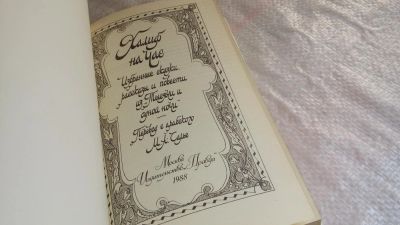 Халиф
на час
Избранные сказки,
рассказы и повести
из Тысячи и
одной ночи
Перевод с арабского
М.А. Салье
Москва
Издательство „Правда“
1988